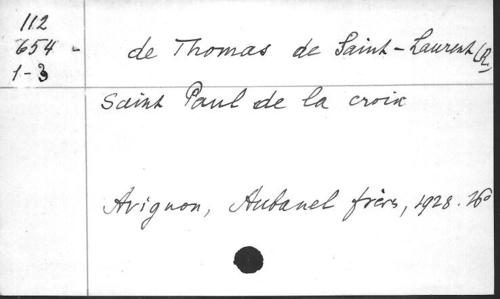 112
654 -
1-3
de Thomas de Saint-Laurent (R)
Saint Paul de la croix
Avignon, Aubanel frères, 1928. 16°